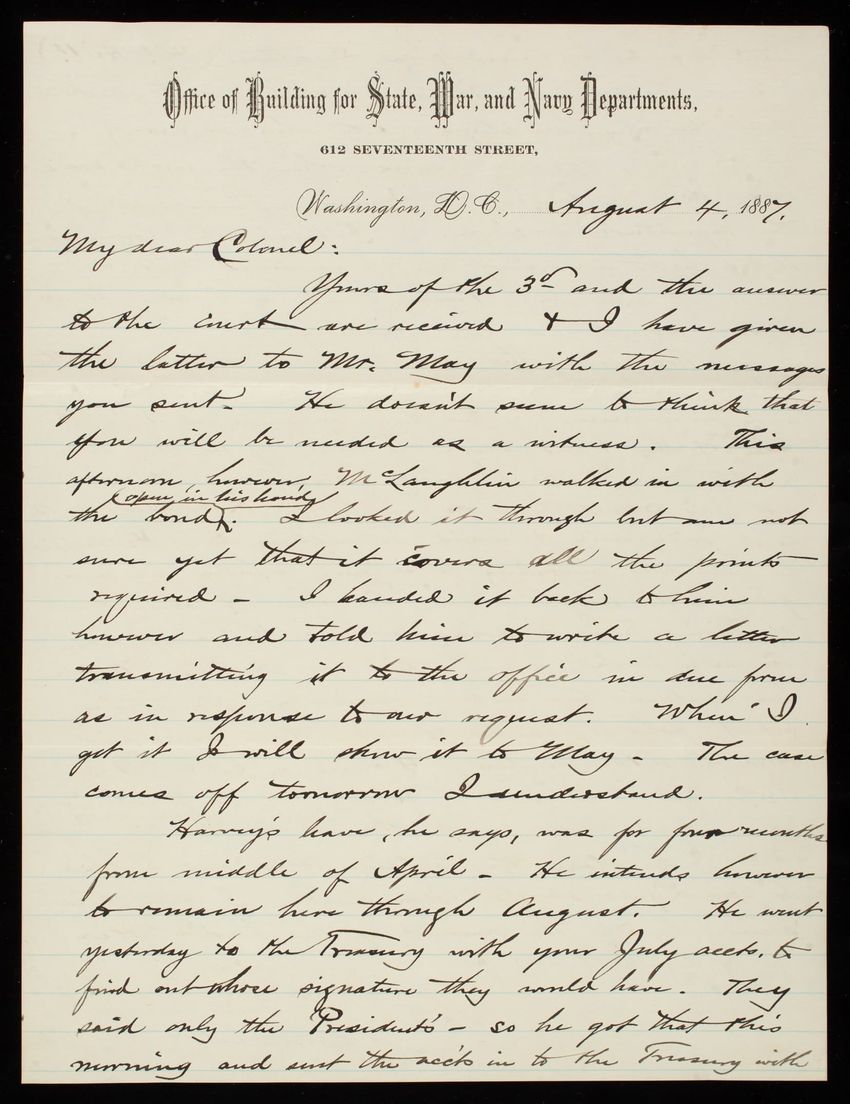 Office of Building for State, War, and Navy Departments,
612 SEVENTEENTH STREET,
Washington, D.C., August 4, 1887.
My dear Colonel:
Yours of the 3d and the answer
to the court are received & I have given
the latter to Mr. May with the messages
you sent. He doesn't seem to think that
you will be needed as a witness. This
afternoon, however, McLaughlin walked in with
(open in his hand)
the bond. I looked it through but am not
sure yet that it covers all the points
required - I handed it back to him
however and told him to write a letter
transmitting it to the office in due form
as in response to our request. When I
get it I will show it to May - The case
comes off tomorrow I understand.
Harvey's leave, he says, was for four months
from middle of April - He intends however
to remain here through August. He went
yesterday to the Treasury with your July accts. to
find out whose signature they would have. They
said only the President's - so he got that this
morning and sent the acc'ts in to the Treasury with